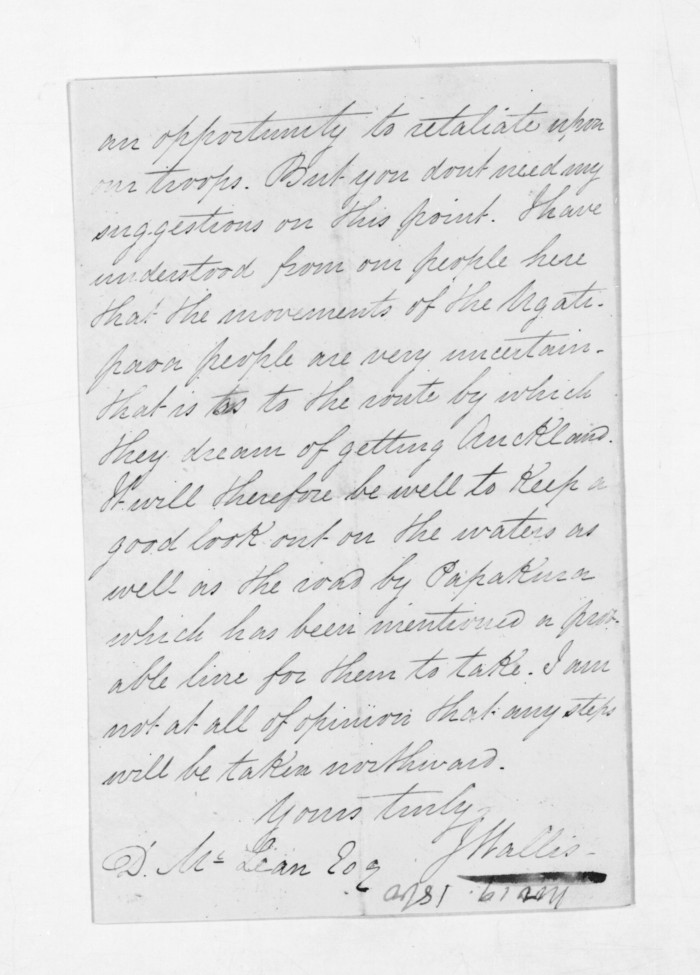 an opportunity to retaliate upon
our troops. But you dont need my
suggestions on this point. I have
understood from our people here
that the movements of the Ngati-
paoa people are very uncertain -
that is as to the route by which
they dream of getting Auckland.
It will therefore be well to keep a
good look out on the waters as
well as the road by Papakura
which has been mentioned a prob-
able line for them to take. I am
not at all of opinion that any steps
will be taken northward.
Yours truly
J Wallis -
D. Mc Lean Esq